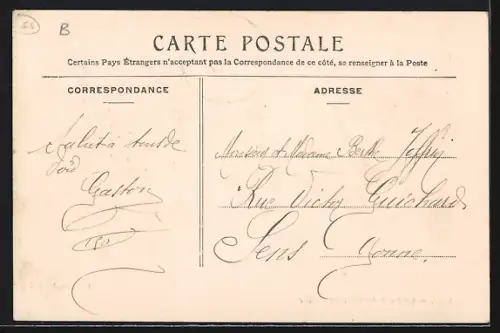 B
CARTE POSTALE
Certains Pays Étrangers n'acceptant pas la Correspondance de ce côté, se renseigner à la Poste
CORRESPONDANCE
ADRESSE
Gaston
Monsieur et Madame Berthe
Rue Victor Guichard
Sens Yonne.